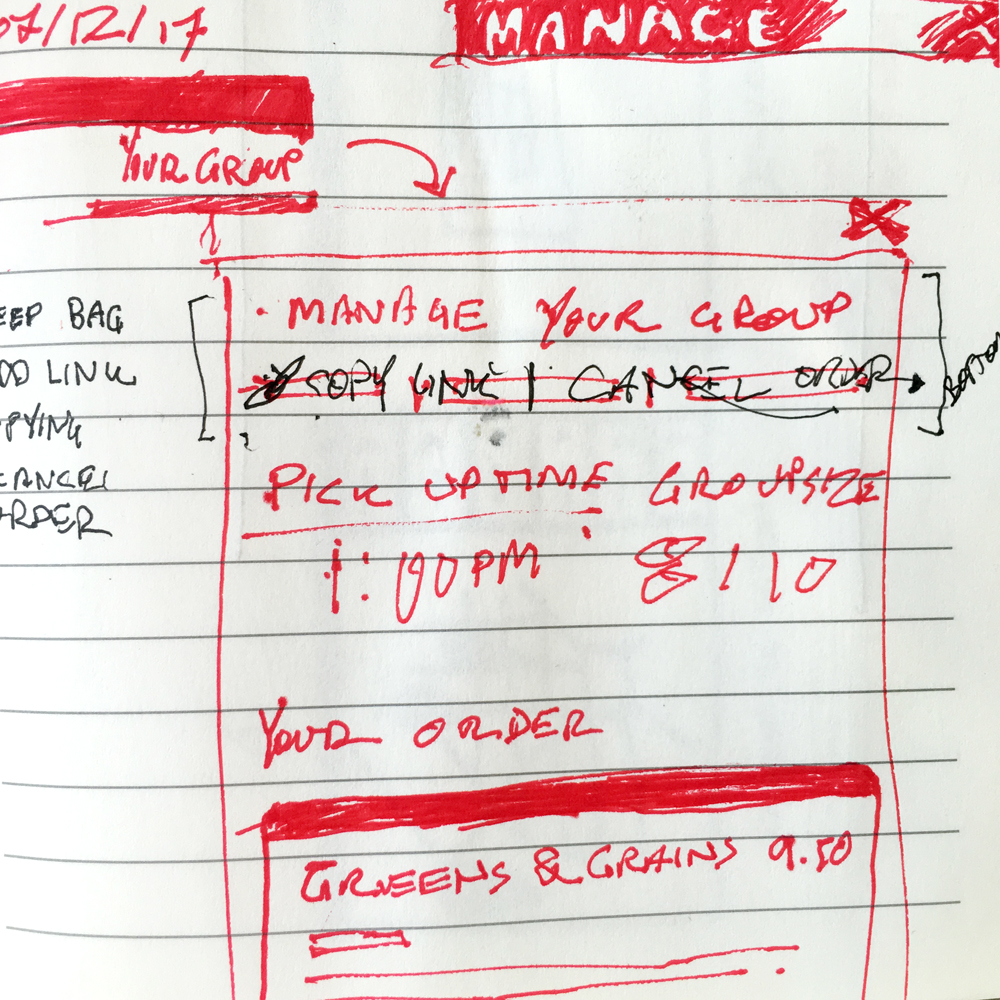 07/12/17
MANAGE
YOUR GROUP
EEP BAG
LINK
CANCEL
ORDER
• MANAGE YOUR GROUP
COPY LINK | CANCEL ORDER
PICK UP TIME GROUP SIZE
1:00PM 8/10
YOUR ORDER
GREENS & GRAINS 9.50